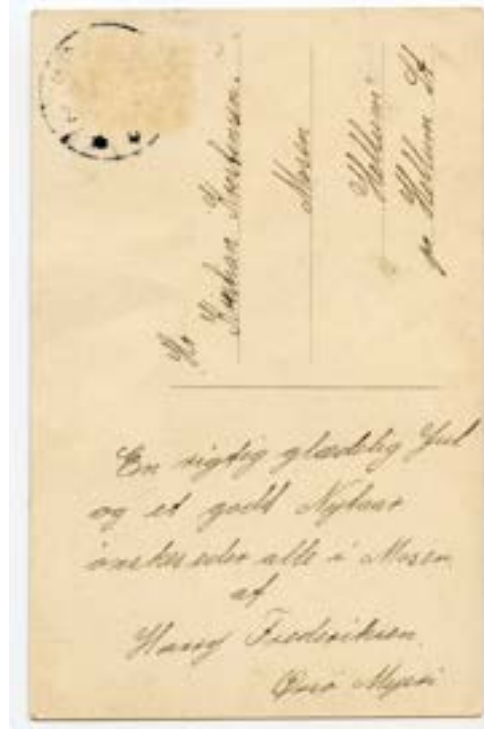 Hr
Kristian Kristensen
Mosen
Hellum
pr Hellum St
En rigtig glædelig Jul
og et godt Nytaar
ønskes eder alle i Mosen
af
Harry Frederiksen